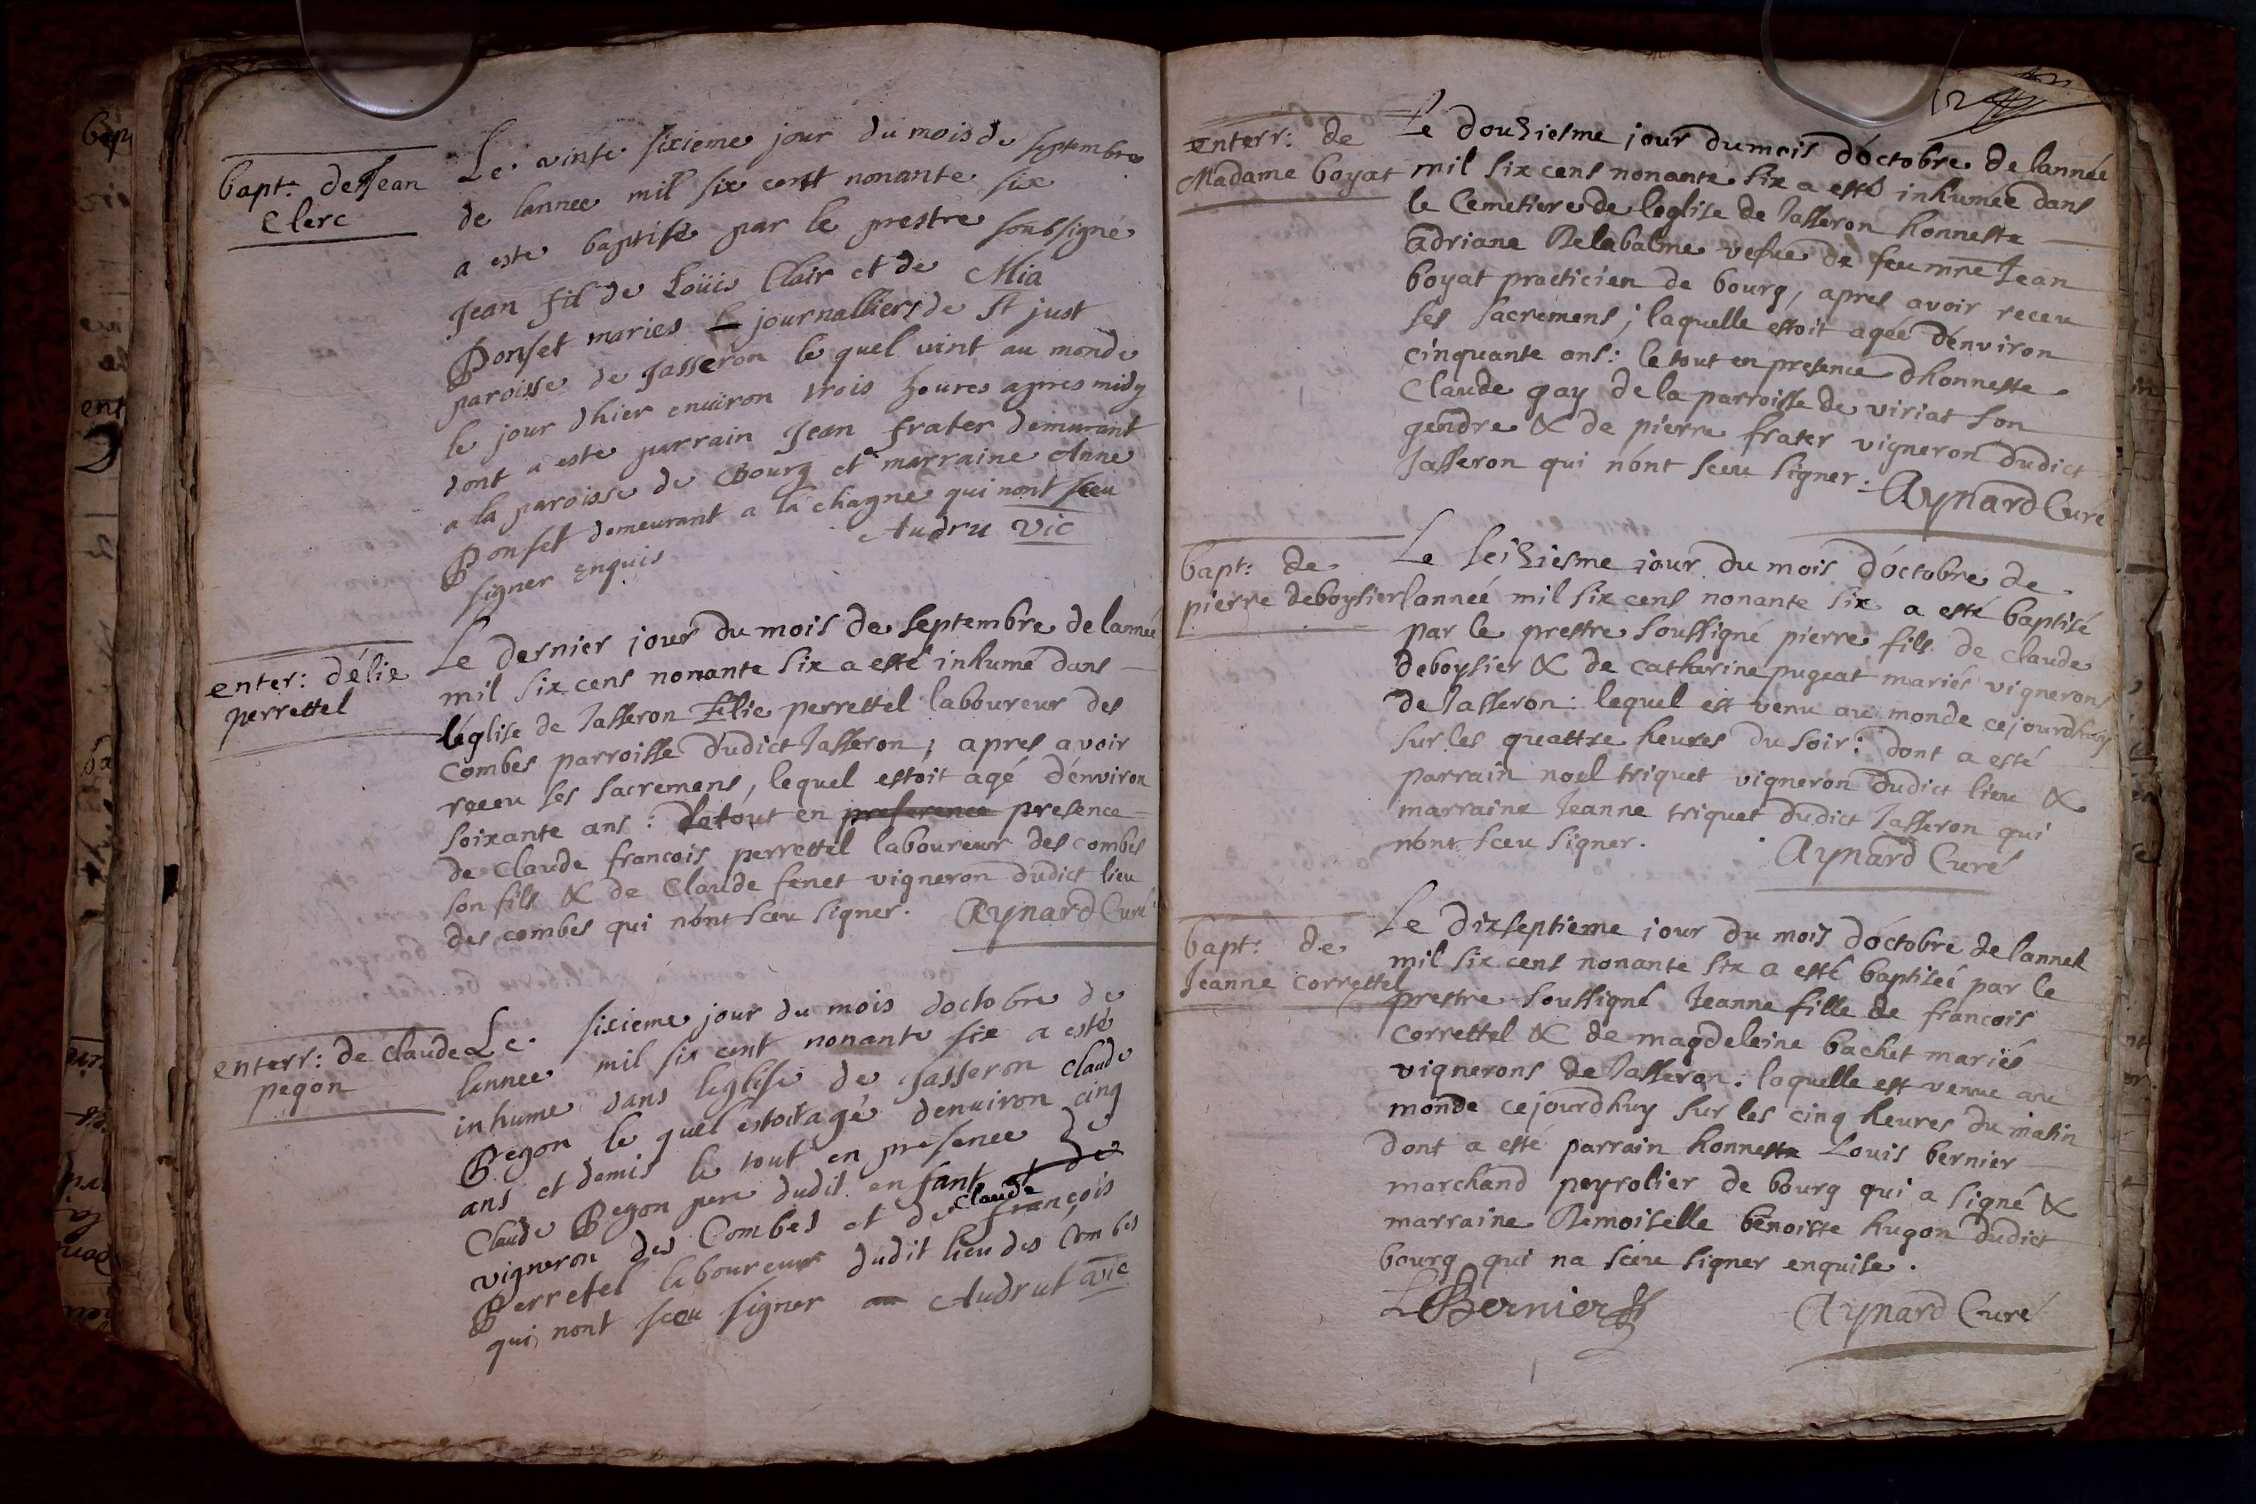 bapt: de Jean
Clerc
Le vinte sixieme jour du mois de septembre
de lannee mil six cent nonante six
a este baptisé par le prestre soubsigné
Jean fil de Loüis Clair et de Mia
Ponset mariés journalliers de St just
paroisse de Jasseron le quel vint au monde
le jour dhier enuiron trois houres apres midy
dont a este parrain Jean frater demurant
a la paroisse de Bourg et marraine Anne
Ponset demeurant a la chagne qui nont sceu
signer enquis
Audru vic
enter: d'élie
perrettel
Le dernier jour du mois de septembre de lanneé
mil six cens nonante six a esté inhumé dans
l'église de Jasseron Elie perrettel laboureur des
combes parroisse dudict Jasseron; apres avoir
receu ses sacremens, lequel estoit agé d'environ
soixante ans: le tout en preference presence
de Claude francois perrettel laboureur des combes
son fils & de Claude fenet vigneron dudict lieu
des combes qui n'ont sceu signer. Aynard Curé
enterr: de claude
pegon
Le sixieme jour du mois doctobre de
lannee mil six cent nonante six a esté
inhume dans leglise de Jasseron claude
Pegon le quel estoit agé denuiron cinq
ans et demis le tout en presence de
Claude Pegon pere dudit enfant et de
vigneron des Combes et de Claude françois
Perretel laboureur dudit lieu des Combes
qui nont sceu signer Audrut vic
12
enterr: de
Madame boyat
Le douziesme jour du mois d'octobre de lanneé
mil six cens nonante six a esté inhumée dans
le Cemetiere de leglise de Jasseron honneste
Adriane Delabalme vefue de feu mre Jean
boyat practicien de bourg, apres avoir receu
ses sacremens; laquelle estoit ageé d'environ
cinquante ans: le tout en presence dhonneste
Claude gay de la parroisse de viriat son
gendre & de pierre frater vigneron dudict
Jasseron qui n'ont sceu signer: Aynard Curé
bapt: de
pierre deboysier
Le seiziesme jour du mois d'octobre de
lanneé mil six cens nonante six a esté baptisé
par le prestre soussigné pierre fils de claude
deboysier & de catharine pugeat mariés vignerons
de Jasseron: lequel est venu au monde cejourdhuy
sur les quattre heures du soir: dont a esté
parrain noel triquet vigneron dudict lieu &
marraine Jeanne triquet dudict Jasseron qui
n'ont sceu signer. Aynard Curé
bapt: de
Jeanne Correttel
Le dixseptieme jour du mois d'octobre de lanneé
mil six cens nonante six a esté baptiseé par le
prestre soussigné Jeanne fille de francois
Correttel & de magdeleine bachet mariés
vignerons de Jasseron: laquelle est venue au
monde cejourdhuy sur les cinq heures du matin
dont a esté parrain honneste Louis bernier
marchand peyrolier de bourg qui a signé &
marraine Demoiselle benoiste hugon dudict
bourg qui na sceu signer enquise.
LBernier Aynard Curé